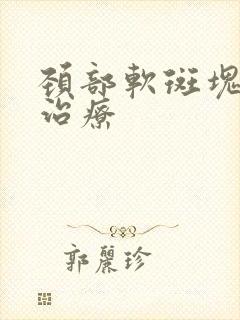 頚部軟斑塊
治療
郭麗珍